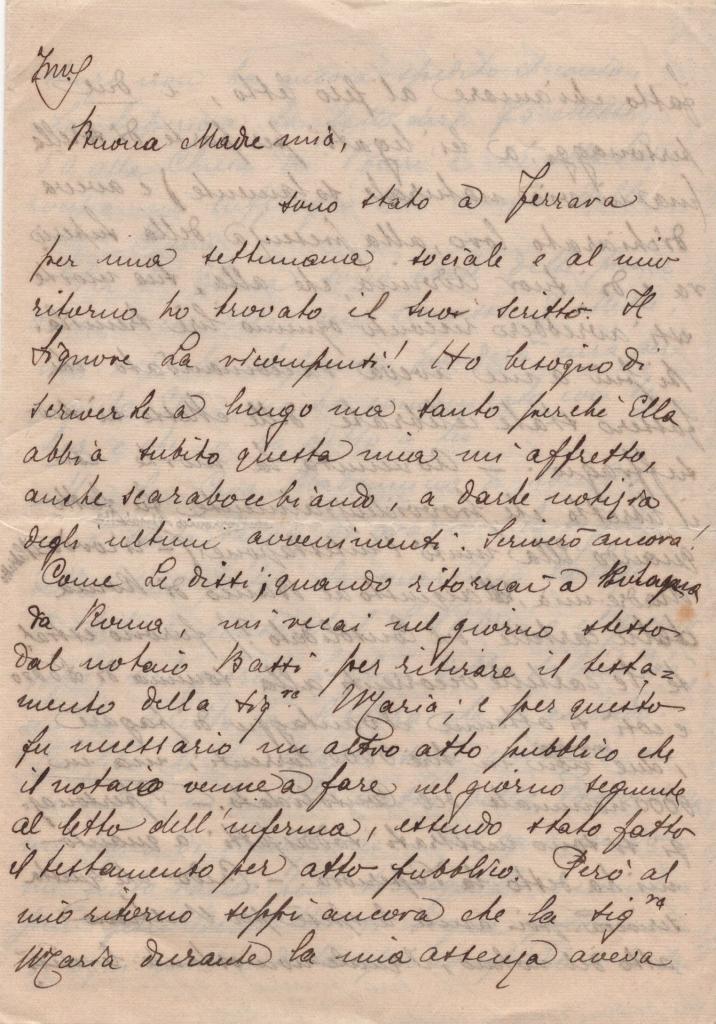 Buona Madre mia,
sono stato a Ferrara
per una settimana sociale e al mio
ritorno ho trovato il Suo scritto. Il
Signore La ricompensi! Ho bisogno di
scriverLe a lungo ma tanto perché Ella
abbia subito questa mia mi affretto,
anche scarabocchiando, a darLe notizia
degli ultimi avvenimenti. Scriverò ancora!
Come Le dissi, quando ritornai a Bologna
da Roma, mi recai nel giorno stesso
dal notaio Bassi per ritirare il testa=
mento della Sig.ra Maria; e per questo
fu necessario un altro atto pubblico che
il notaio venne a fare nel giorno seguente
al letto dell'inferma, essendo stato fatto
il testamento per atto pubblico. Però al
mio ritorno seppi ancora che la Sig.ra
Maria durante la mia assenza aveva